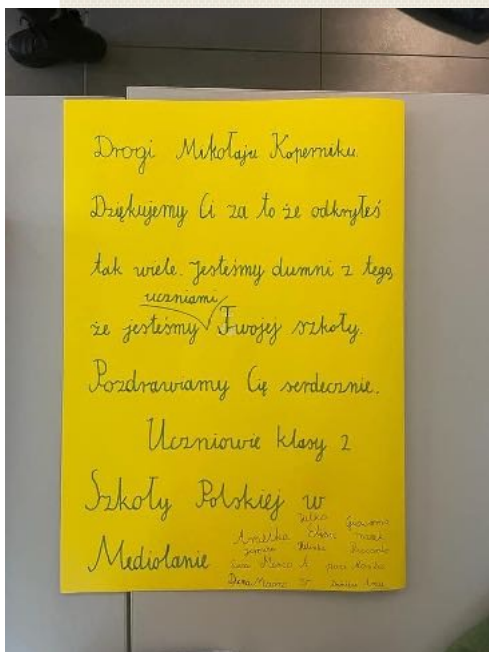 Drogi Mikołaju Koperniku
Dziękujemy Ci za to że odkryłeś
tak wiele. Jesteśmy dumni z tego,
uczniami
że jesteśmy Twojej szkoły.
Pozdrawiamy Cię serdecznie.
Uczniowie klasy 2
Szkoły Polskiej w
Mediolanie
Julka
Marco A.